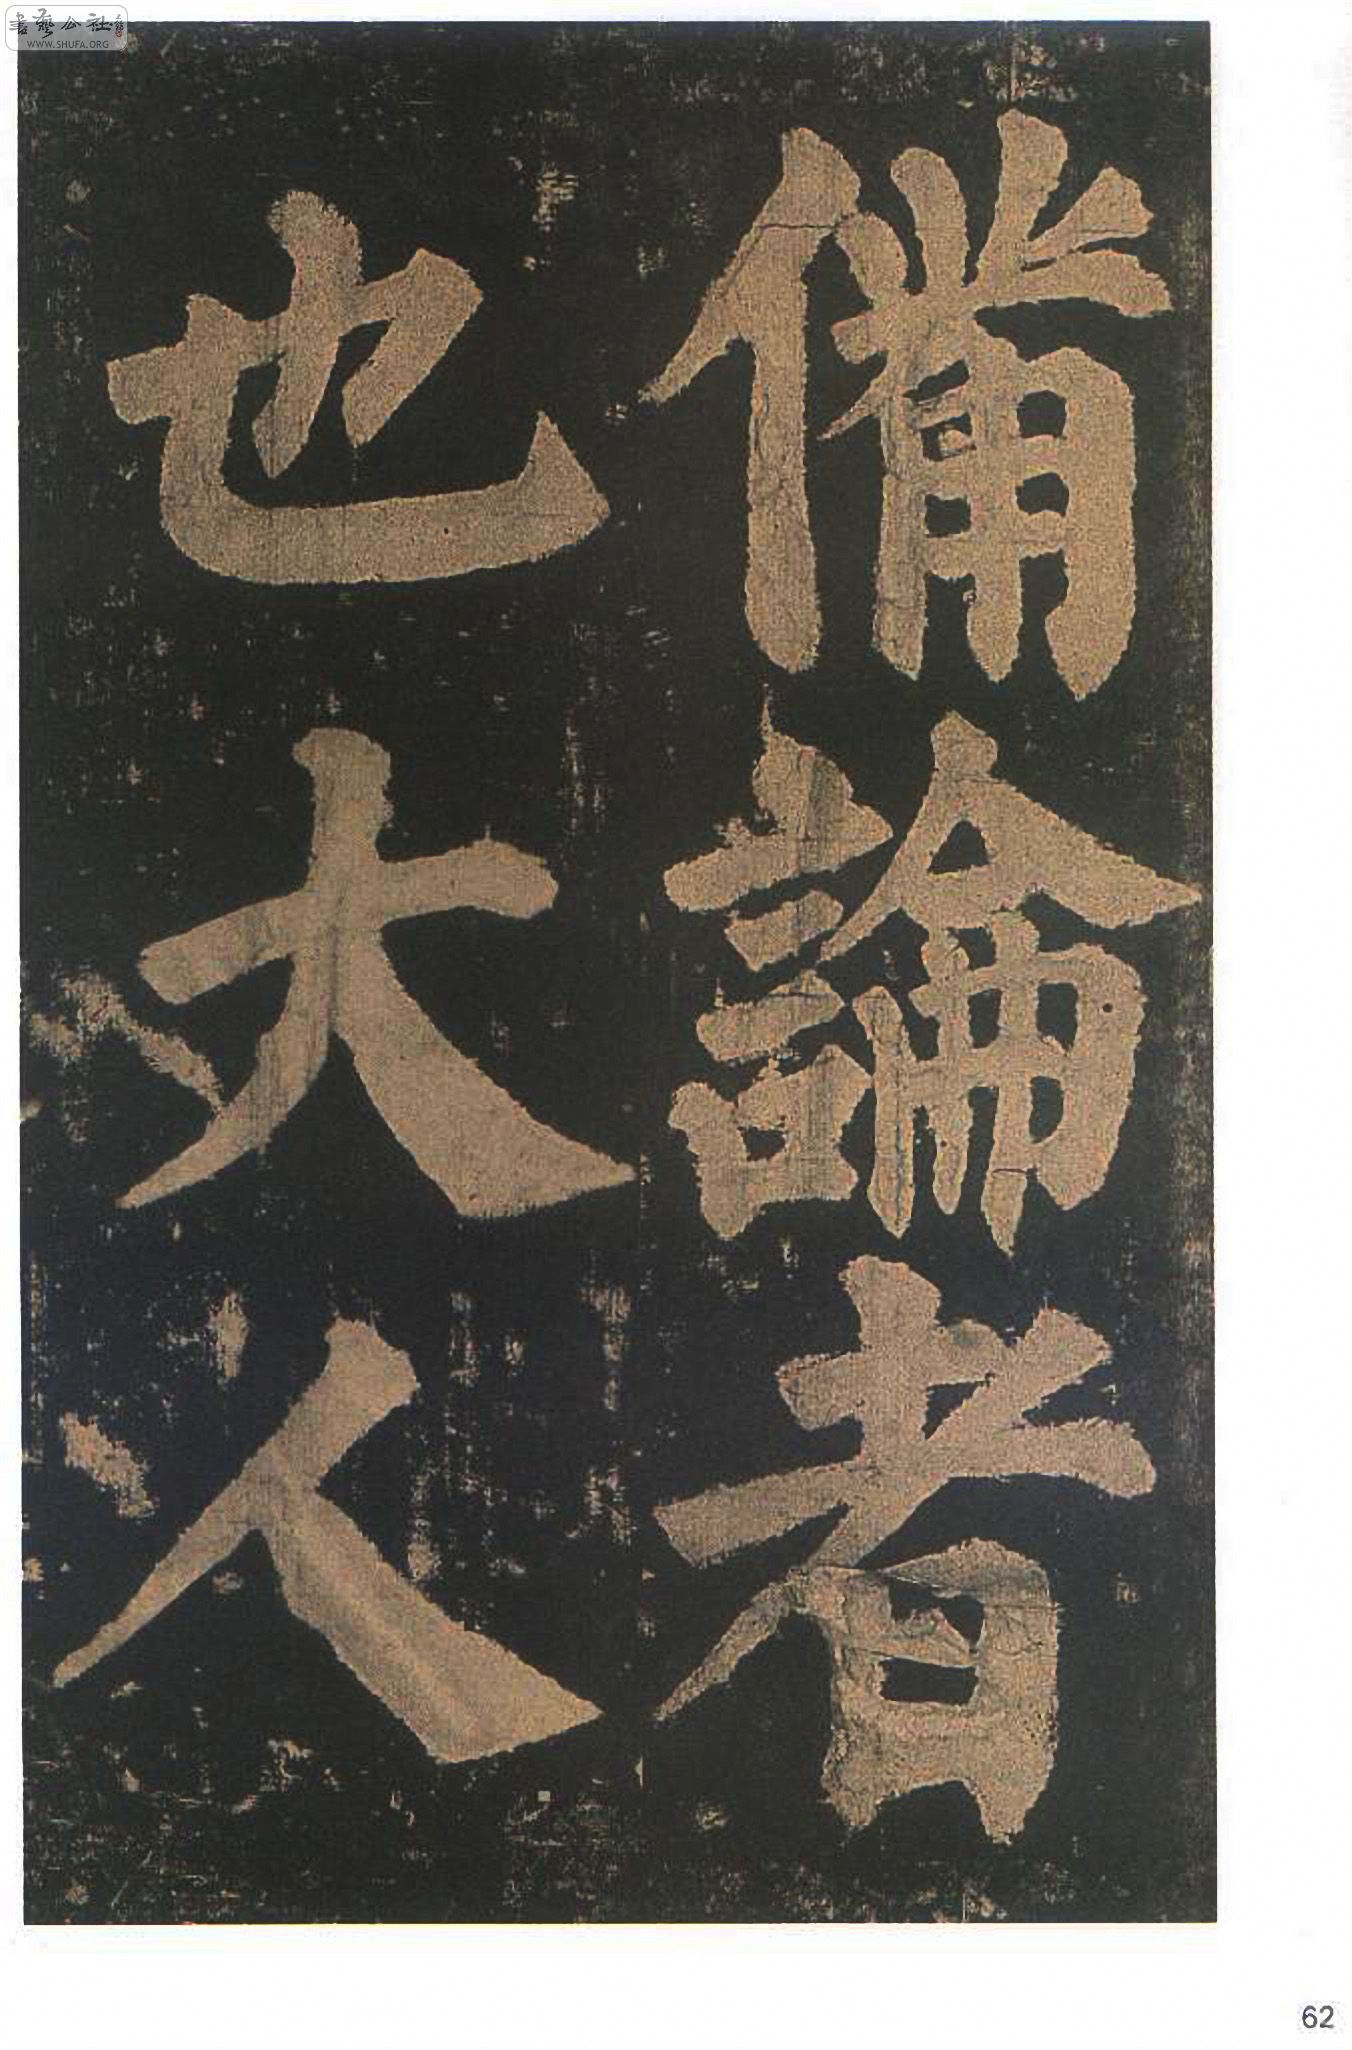 備論者
也大人
62
書藝公社
WWW.SHUFA.ORG